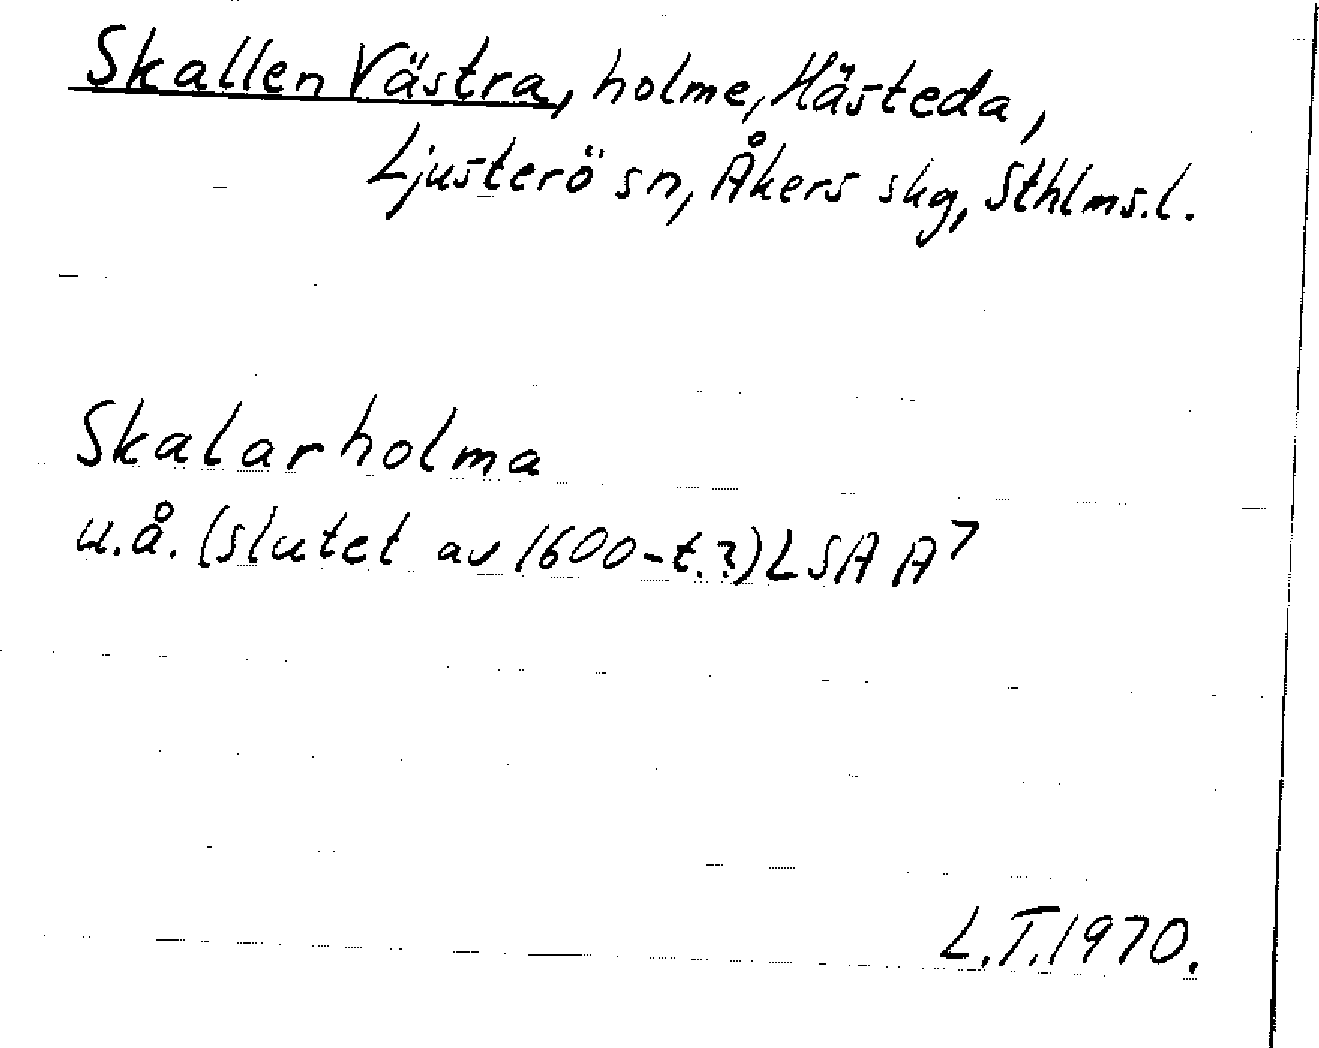 Skallen Västra, holme, Hästeda,
Ljusterö sn, Åkers skg, Sthlms.l.
Skalarholma
u.å. (slutet av 1600-t.?) LSA A7
L.T. 1970.